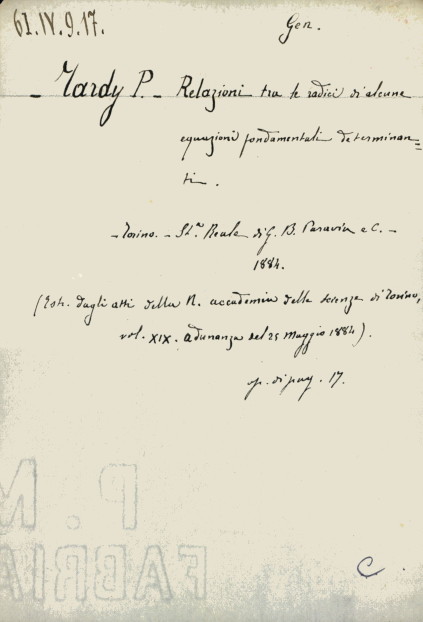 61.IV.9.17.
Gen.
- Tardy P. - Relazioni tra le radici di alcune
equazioni fondamentali determinan=
ti.
- Torino. - St.ia Reale di G. B. Paravia e C. -
1884.
(Estr. dagli atti della R. accademia delle scienze di Torino,
vol. XIX. adunanza del 25 Maggio 1884).
op. di pag. 17.
P.M
FABRIA
C